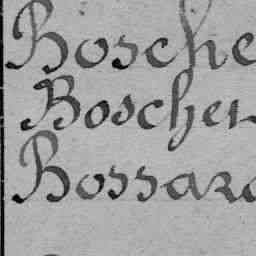 Bosche
Boscher
Bossard